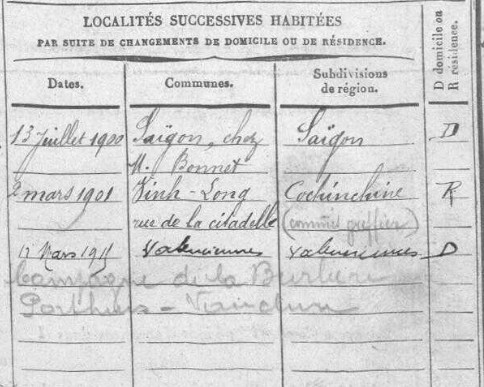 LOCALITÉS SUCCESSIVES HABITÉES
PAR SUITE DE CHANGEMENTS DE DOMICILE OU DE RÉSIDENCE.
D domicile ou
R résidence.
Dates. Communes. Subdivisions
de région.
13 Juillet 1900 Saïgon, chez Saïgon D
M. Bonnet
2 mars 1901 Vinh-Long Cochinchine R
rue de la citadelle (commis greffier)
Mars Valenciennes Valenciennes D
Campagne de la